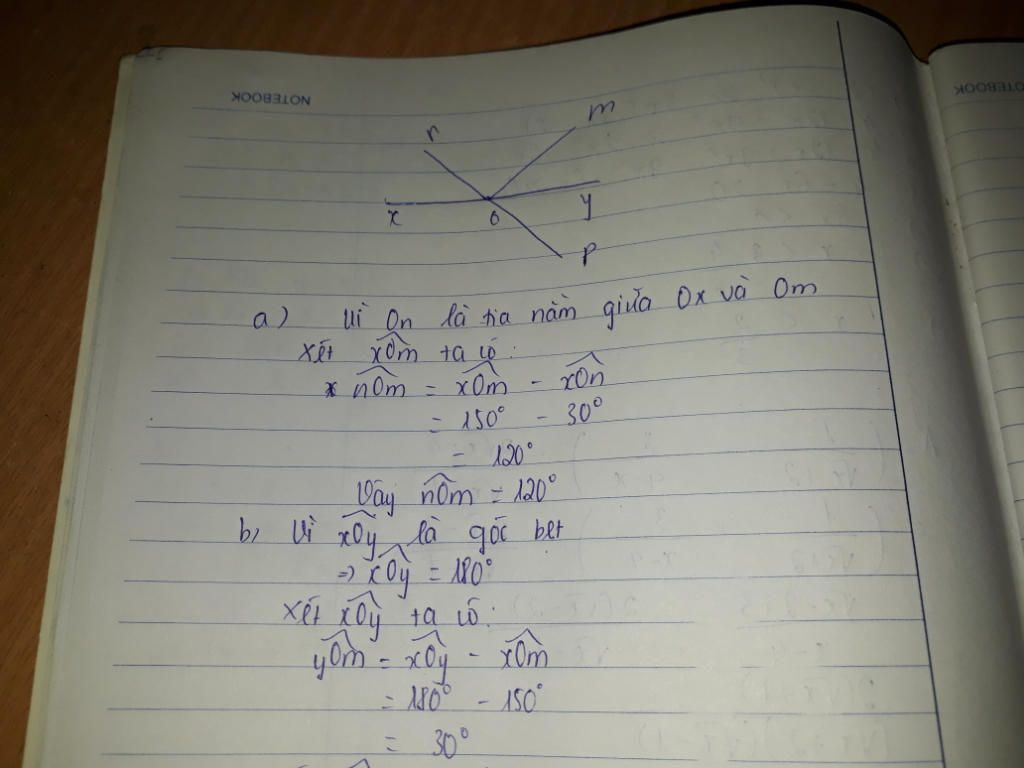 NOTEBOOK
NOTEBOOK
n m
x O y
p
a) Vì On là tia nằm giữa Ox và Om
Xét xOm ta có:
nOm = xOm - xOn
= 150° - 30°
= 120°
Vậy nOm = 120°
b, Vì xOy là góc bẹt
=> xOy = 180°
Xét xOy ta có:
yOm = xOy - xOm
= 180° - 150°
= 30°